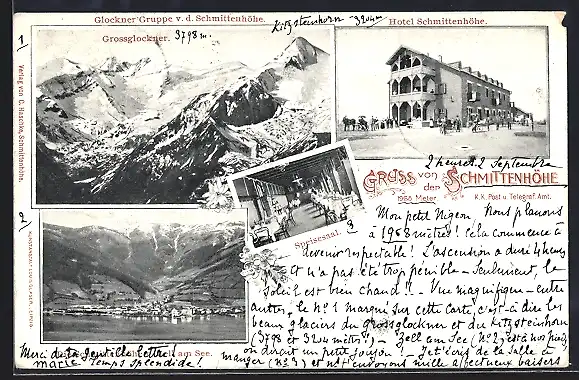 Glockner Gruppe v. d. Schmittenhöhe.
Kitzsteinhorn 3204m
Hotel Schmittenhöhe.
Grossglockner. 3798 m.
1
Verlag von C. Haschke, Schmittenhöhe.
2 heures 2 Septembre
Gruss von der Schmittenhöhe
1968 Meter
K. K. Post u. Telegraf. Amt.
Speisesaal.
3
2
Mon petit Pigeon, Nous planons
à 1968 mètres! Cela commence à
devenir respectable! L'ascension a duré 4 heures
et n'a pas été trop pénible - Seulement, le
Soleil est bien chaud!! - Vue magnifique - entre
autres, le No 1 marqué sur cette Carte, c'est-à-dire les
beaux glaciers du grossglockner et du Kitzsteinhorn
(3798 et 3204 mètres") - Zell am See (No 2) est à nos pieds,
on dirait un petit joujou! - Je t'écris de la Salle à
manger (No 3) et t'envoyons mille affectueux baisers
am See.
Merci de la gentille lettre!
marie Temps splendide!